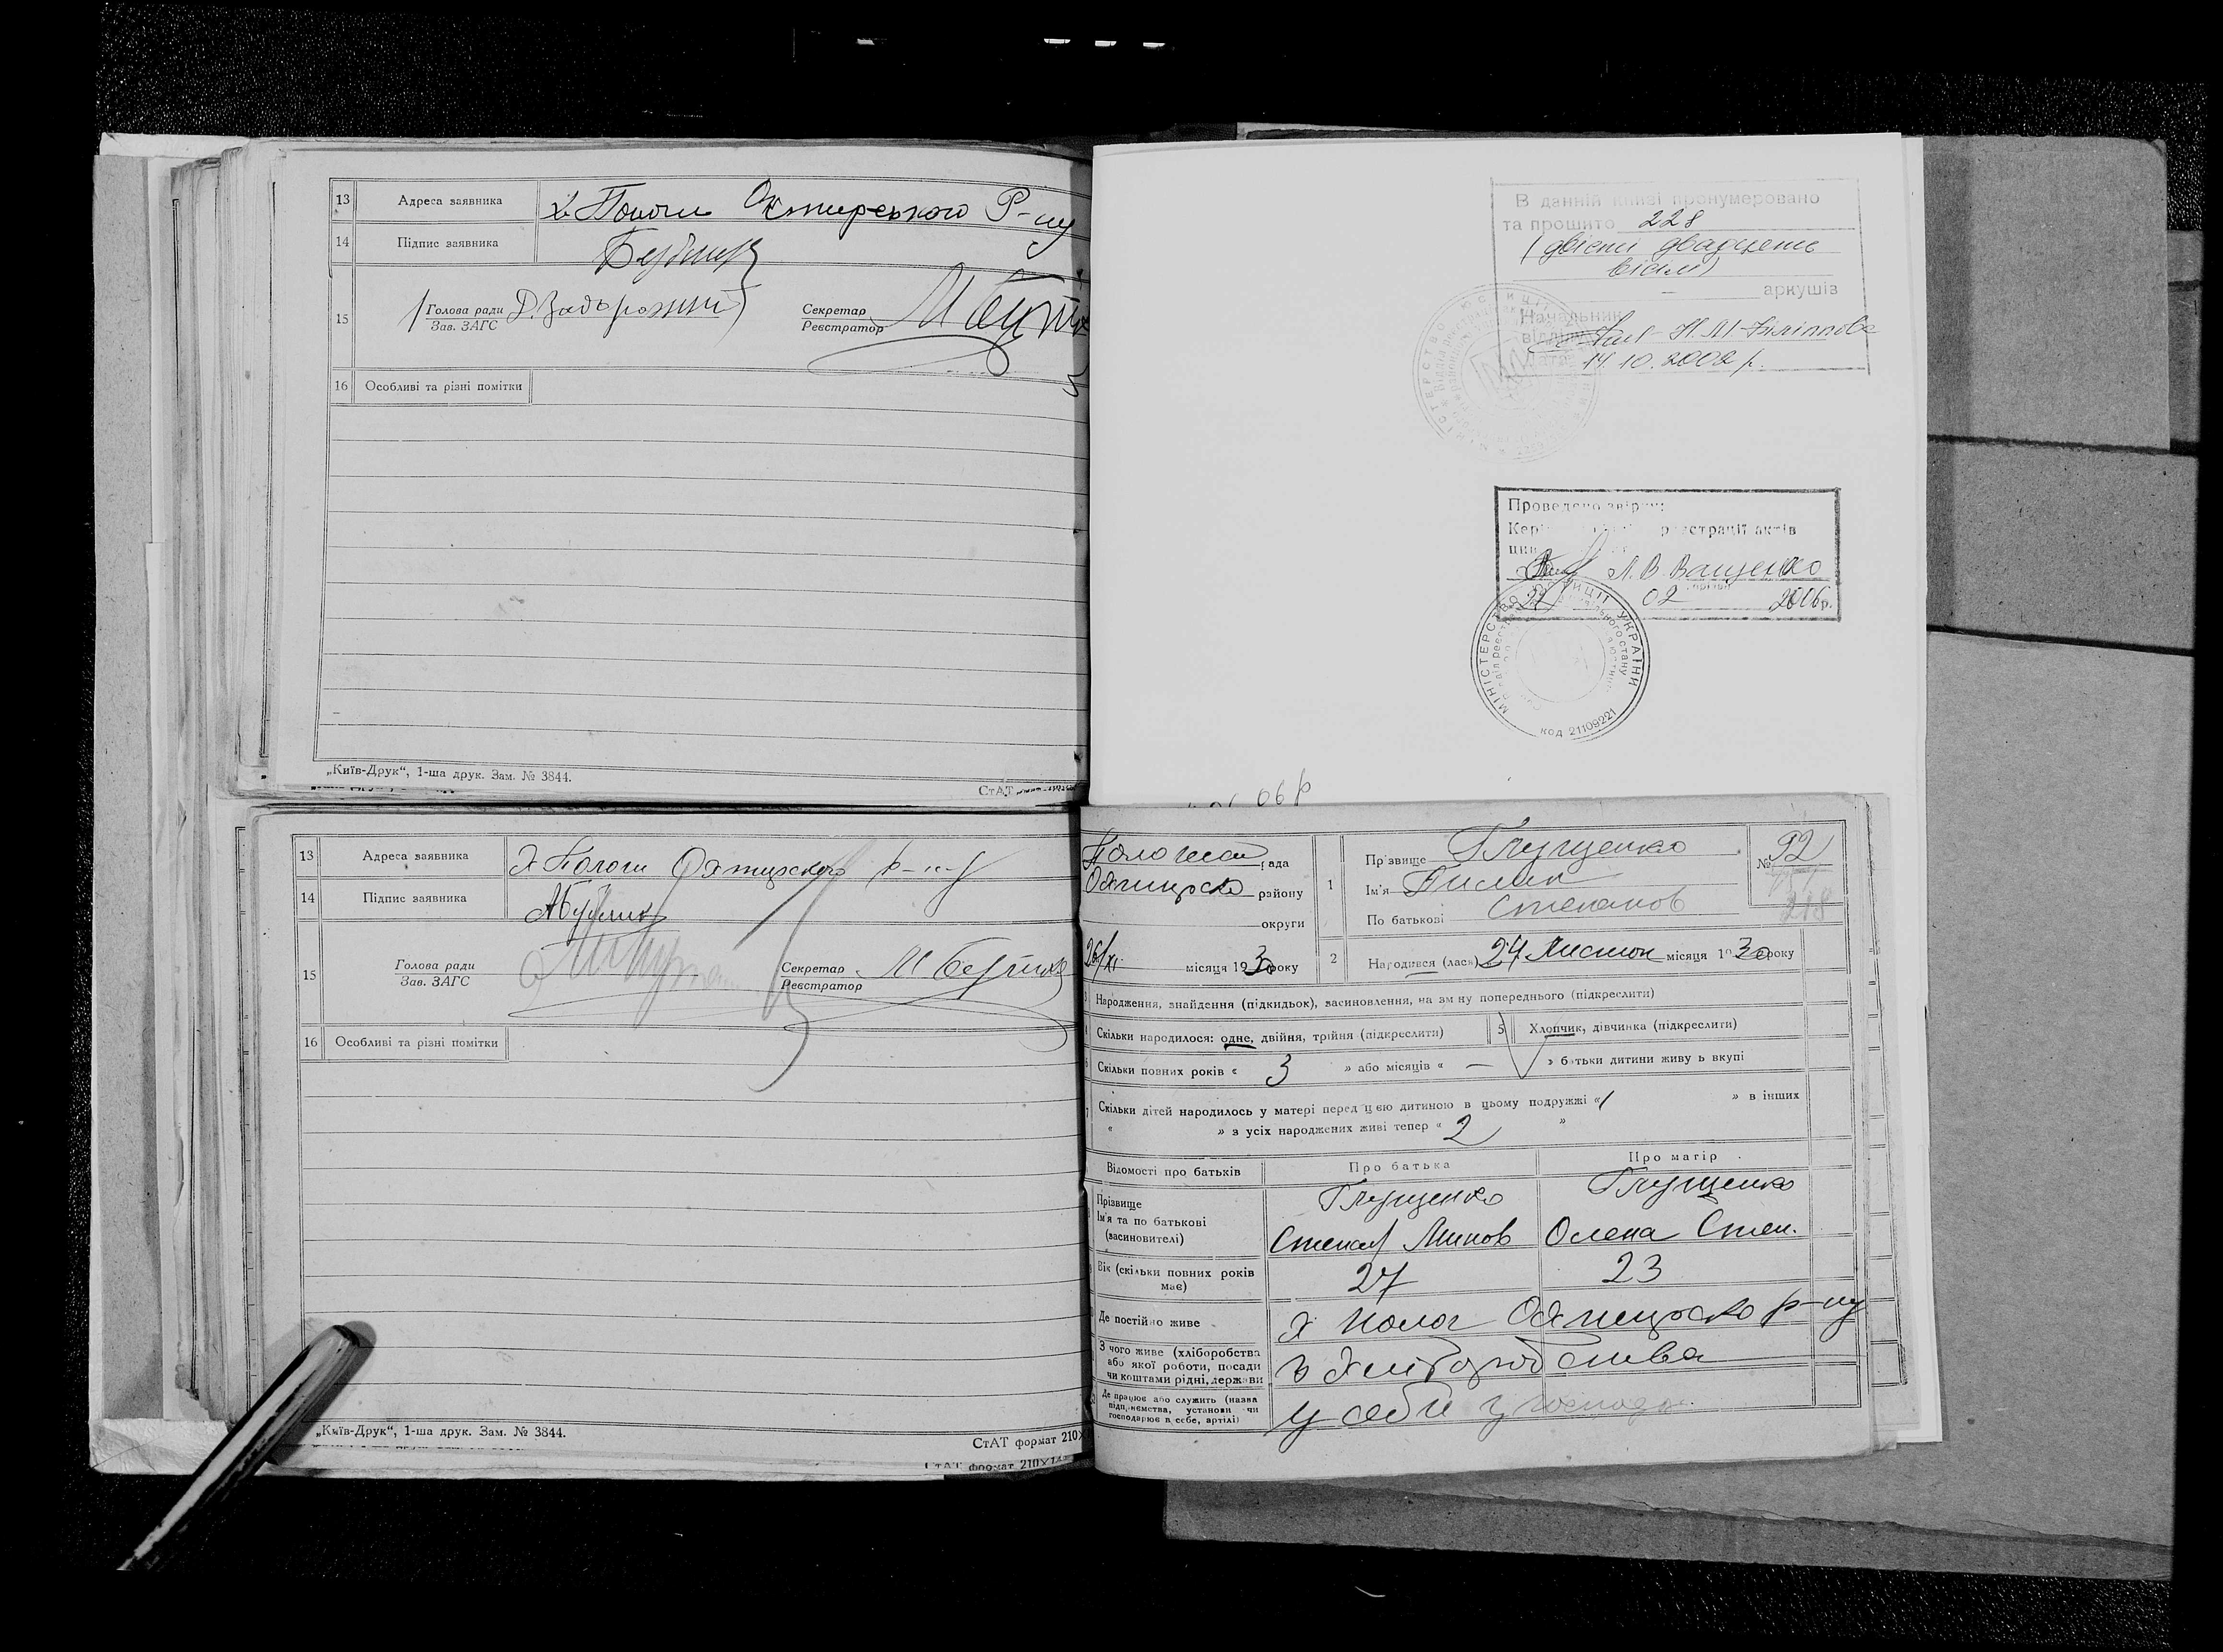 13 Адреса заявника х. Пологи Охтирського Р-ну
14 Підпис заявника
15 Голова ради Д. Задорожний Секретар
Зав. ЗАГС Реєстратор
16 Особливі та різні помітки
„Київ-Друк“, 1-ша друк. Зам. № 3844.
СтАТ
В данній книзі пронумеровано
та прошито 228
(двісті двадцять
вісім)
аркушів
Начальник
відділу
14.10.2002 р.
Проведено звірку:
реєстрації актів
Л.В. Ващенко
02 2006р.
МІНІСТЕРСТВО ЮСТИЦІЇ УКРАЇНИ
код 21109221
06р
13 Адреса заявника х Пологи Охтирского р-ну
14 Підпис заявника
15 Голова ради Секретар
Зав. ЗАГС Реєстратор
16 Особливі та різні помітки
„Київ-Друк“, 1-ша друк. Зам. № 3844.
СтАТ формат 210×
СтАТ формат 210×14
рада
району
округи
26/XI місяця 1930 року
1 Прізвище Глущенко
Ім'я
По батькові Степанов
№ 92
218
2 Народився (лася) 24 Листоп місяця 1930 року
3 Народження, знайдення (підкидьок), засиновлення, на зміну попереднього (підкреслити)
Скільки народилося: одне, двійня, трійня (підкреслити) 5 Хлопчик, дівчинка (підкреслити)
Скільки повних років « 3 » або місяців « — » батьки дитини живуть вкупі
7 Скільки дітей народилось у матері перед цією дитиною в цьому подружжі « 1 » в інших
« » з усіх народжених живі тепер « 2 »
Відомості про батьків Про батька Про матір
Прізвище Глущенко Глущенко
Ім'я та по батькові
(засиновителі) Степан Минов Олена Степ.
Вік (скільки повних років
має) 27 23
Де постійно живе х Полог Охтирско р-ну
З чого живе (хліборобства
або якої роботи, посади
чи коштами рідні, держави з хліборобства
Де працює або служить (назва
підприємства, установи чи
господарює в себе, артілі) у себе у господ